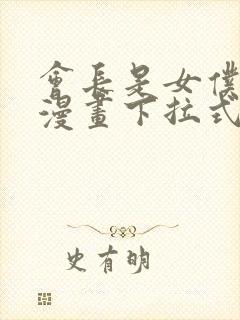 會長是女僕
漫畫下拉式
史有明